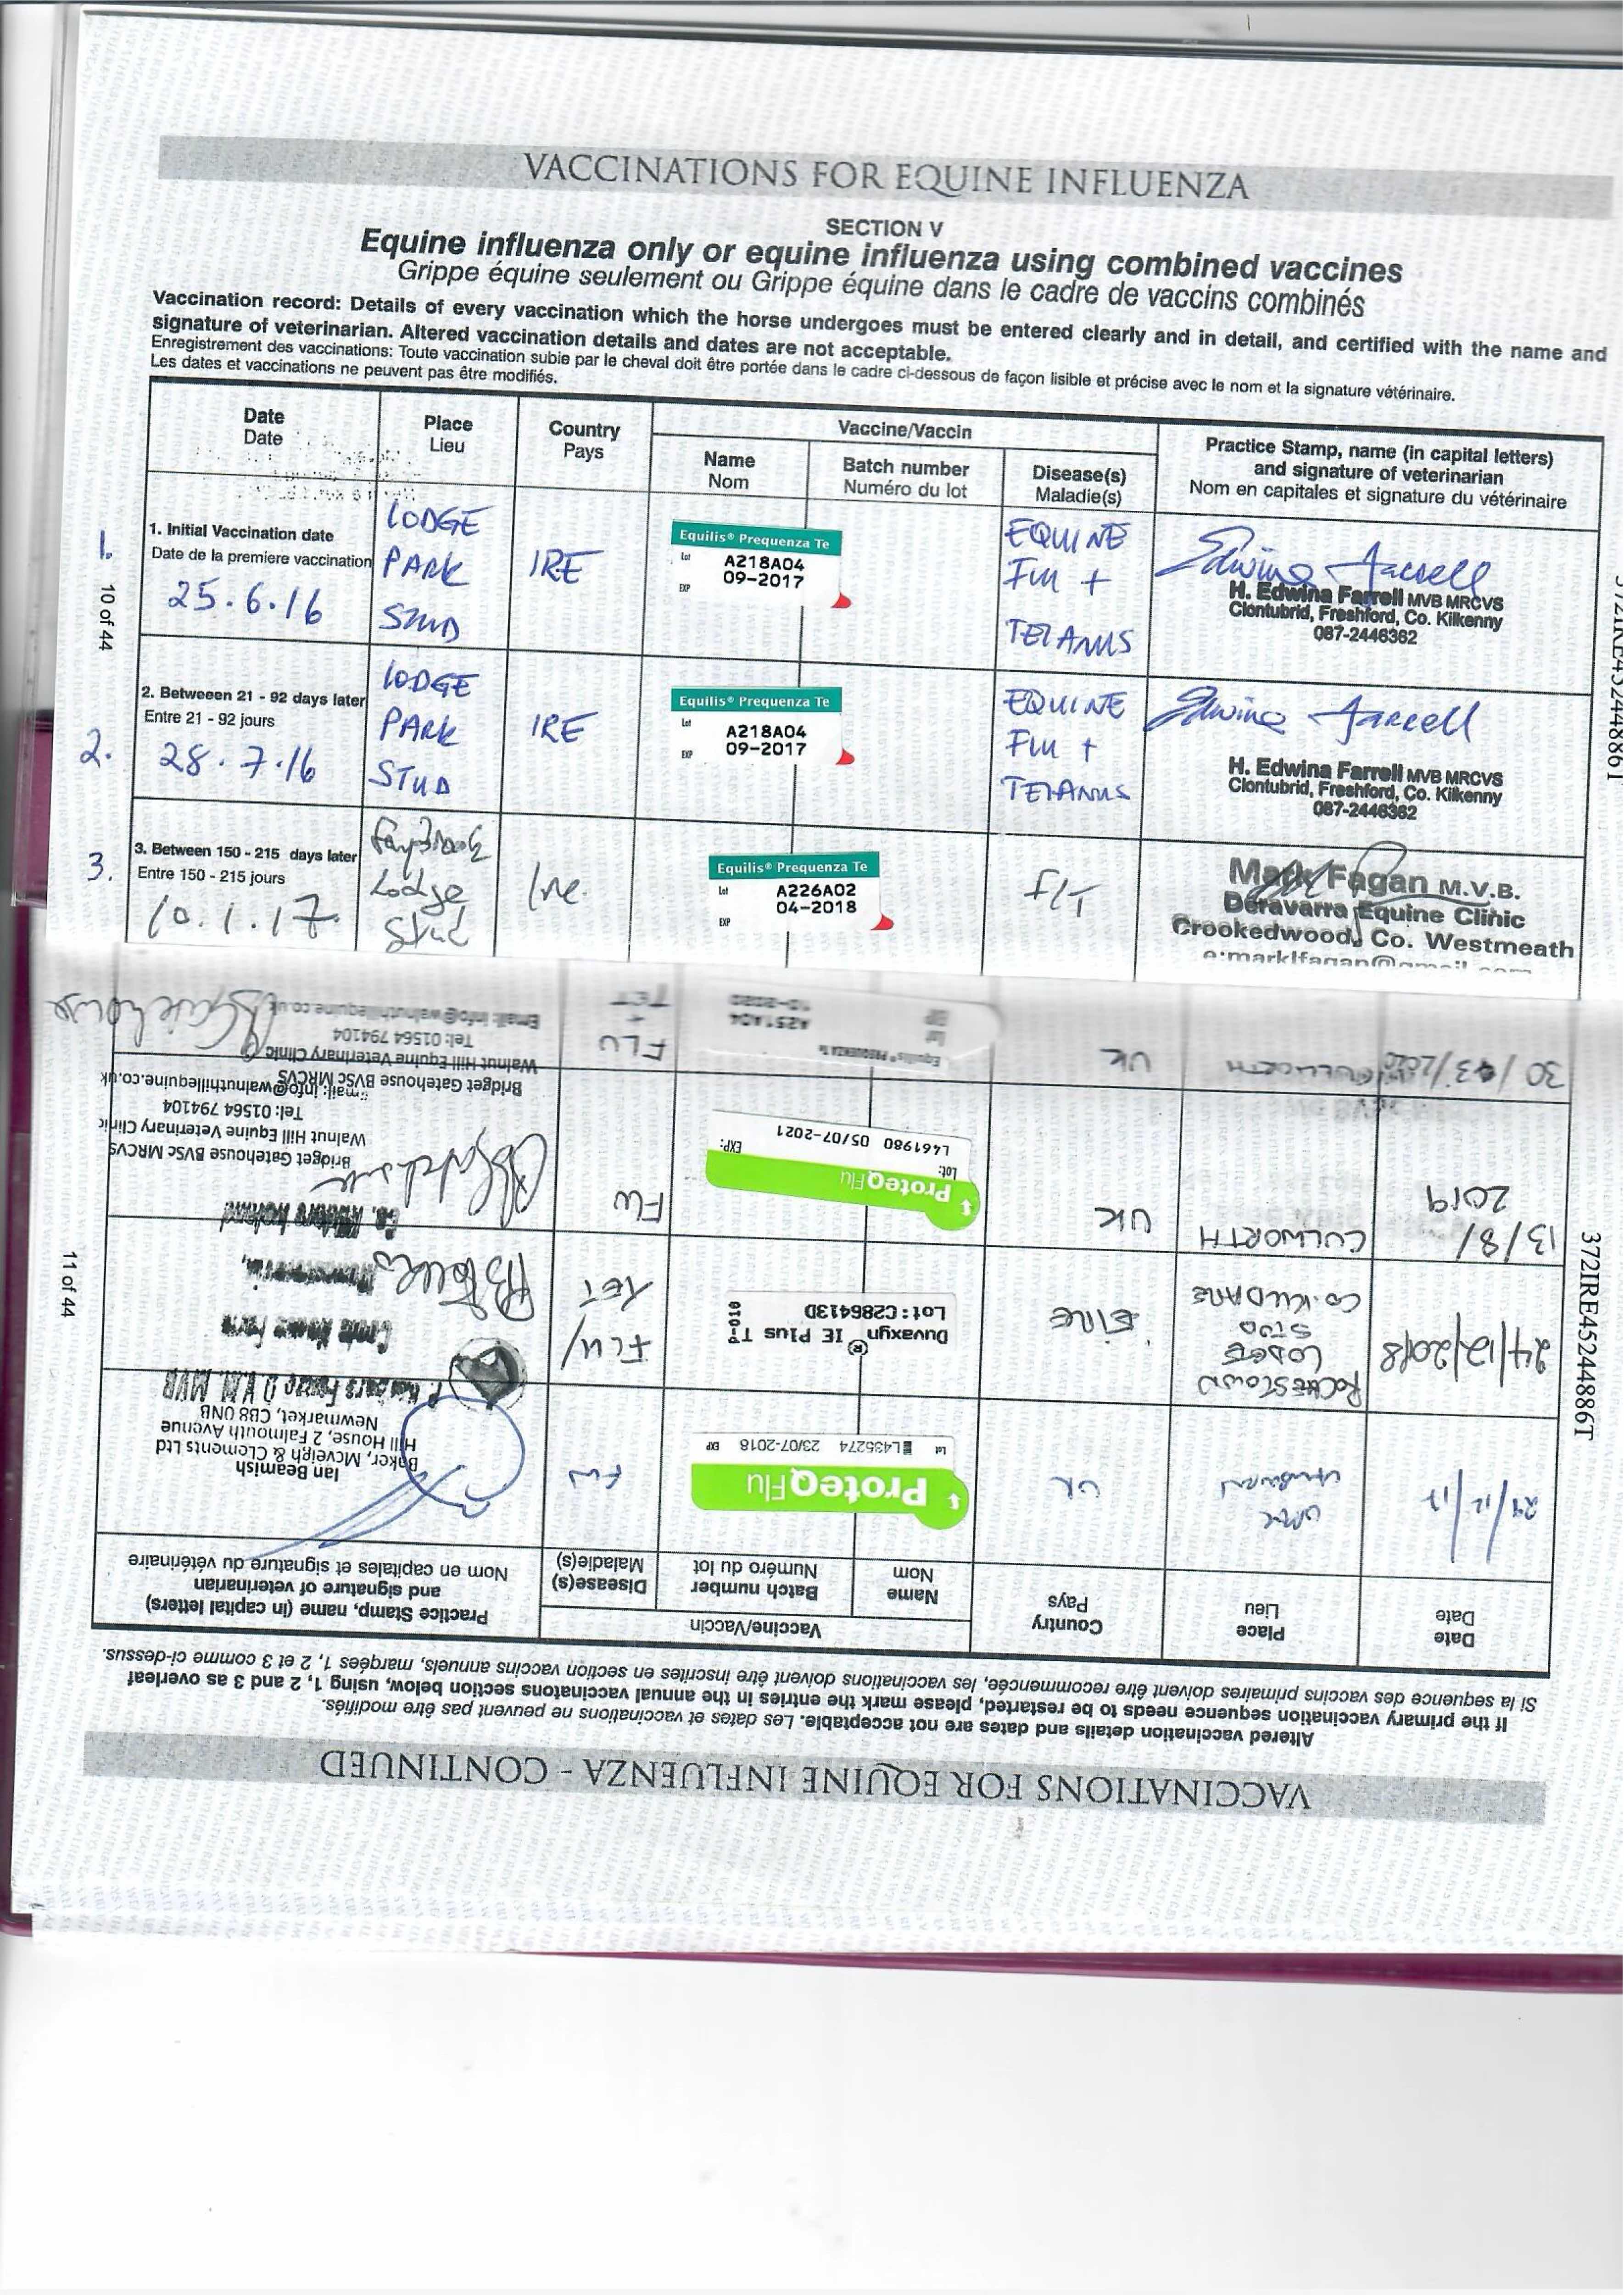 VACCINATIONS FOR EQUINE INFLUENZA
SECTION V
Equine influenza only or equine influenza using combined vaccines
Grippe équine seulement ou Grippe équine dans le cadre de vaccins combinés
Vaccination record: Details of every vaccination which the horse undergoes must be entered clearly and in detail, and certified with the name and
signature of veterinarian. Altered vaccination details and dates are not acceptable.
Enregistrement des vaccinations: Toute vaccination subie par le cheval doit être portée dans le cadre ci-dessous de façon lisible et précise avec le nom et la signature vétérinaire.
Les dates et vaccinations ne peuvent pas être modifiés.
Date
Date
Place
Lieu
Country
Pays
Vaccine/Vaccin
Name
Nom
Batch number
Numéro du lot
Disease(s)
Maladie(s)
Practice Stamp, name (in capital letters)
and signature of veterinarian
Nom en capitales et signature du vétérinaire
1.
1. Initial Vaccination date
Date de la premiere vaccination
25.6.16
LODGE
PARK
STUD
IRE
Equilis® Prequenza Te
Lot A218A04
EXP 09-2017
EQUINE
FLU +
TETANUS
Edwina Farrell
H. Edwina Farrell MVB MRCVS
Clontubrid, Freshford, Co. Kilkenny
087-2446362
10 of 44
2.
2. Betweeen 21 - 92 days later
Entre 21 - 92 jours
28.7.16
LODGE
PARK
STUD
IRE
Equilis® Prequenza Te
Lot A218A04
EXP 09-2017
EQUINE
FLU +
TETANUS
Edwina Farrell
H. Edwina Farrell MVB MRCVS
Clontubrid, Freshford, Co. Kilkenny
087-2446362
3.
3. Between 150 - 215 days later
Entre 150 - 215 jours
10.1.17.
Lodge
Stud
Ire.
Equilis® Prequenza Te
Lot A226A02
EXP 04-2018
F/T
Mark Fagan M.V.B.
Deravarra Equine Clinic
Crookedwood, Co. Westmeath
e:marklfagan@gmail.com
372IRE45244886T
VACCINATIONS FOR EQUINE INFLUENZA - CONTINUED
Altered vaccination details and dates are not acceptable. Les dates et vaccinations ne peuvent pas être modifiés.
If the primary vaccination sequence needs to be restarted, please mark the entries in the annual vaccinatons section below, using 1, 2 and 3 as overleaf
Si la sequence des vaccins primaires doivent être recommencée, les vaccinations doivent être inscrites en section vaccins annuels, marqées 1, 2 et 3 comme ci-dessus.
Date
Date
Place
Lieu
Country
Pays
Vaccine/Vaccin
Name
Nom
Batch number
Numéro du lot
Disease(s)
Maladie(s)
Practice Stamp, name (in capital letters)
and signature of veterinarian
Nom en capitales et signature du vétérinaire
29/12/17
UK
ProteqFlu
Lot L435274 23/07-2018 EXP
FLU
Ian Beamish
Baker, Mcveigh & Clements Ltd
Hill House, 2 Falmouth Avenue
Newmarket, CB8 0NB
24/12/2018
ROCHESTOWN
LODGE
STUD
CO. KILDARE
EIRE
Duvaxyn® IE Plus T
Lot: C286413D
FLU/
TET
13/8/
2019
CULWORTH
UK
ProteqFlu
Lot:
L461980 05/07-2021 EXP:
FLU
Bridget Gatehouse BVSc MRCVS
Walnut Hill Equine Veterinary Clinic
Tel: 01564 794104
Email: info@walnuthillequine.co.uk
30/03/2020
CULWORTH
UK
Equilis® PREQUENZA Te
Lot A251A04
EXP 10-2020
FLU
+
TET
Bridget Gatehouse BVSc MRCVS
Walnut Hill Equine Veterinary Clinic
Tel: 01564 794104
Email: info@walnuthillequine.co.uk
11 of 44
372IRE45244886T